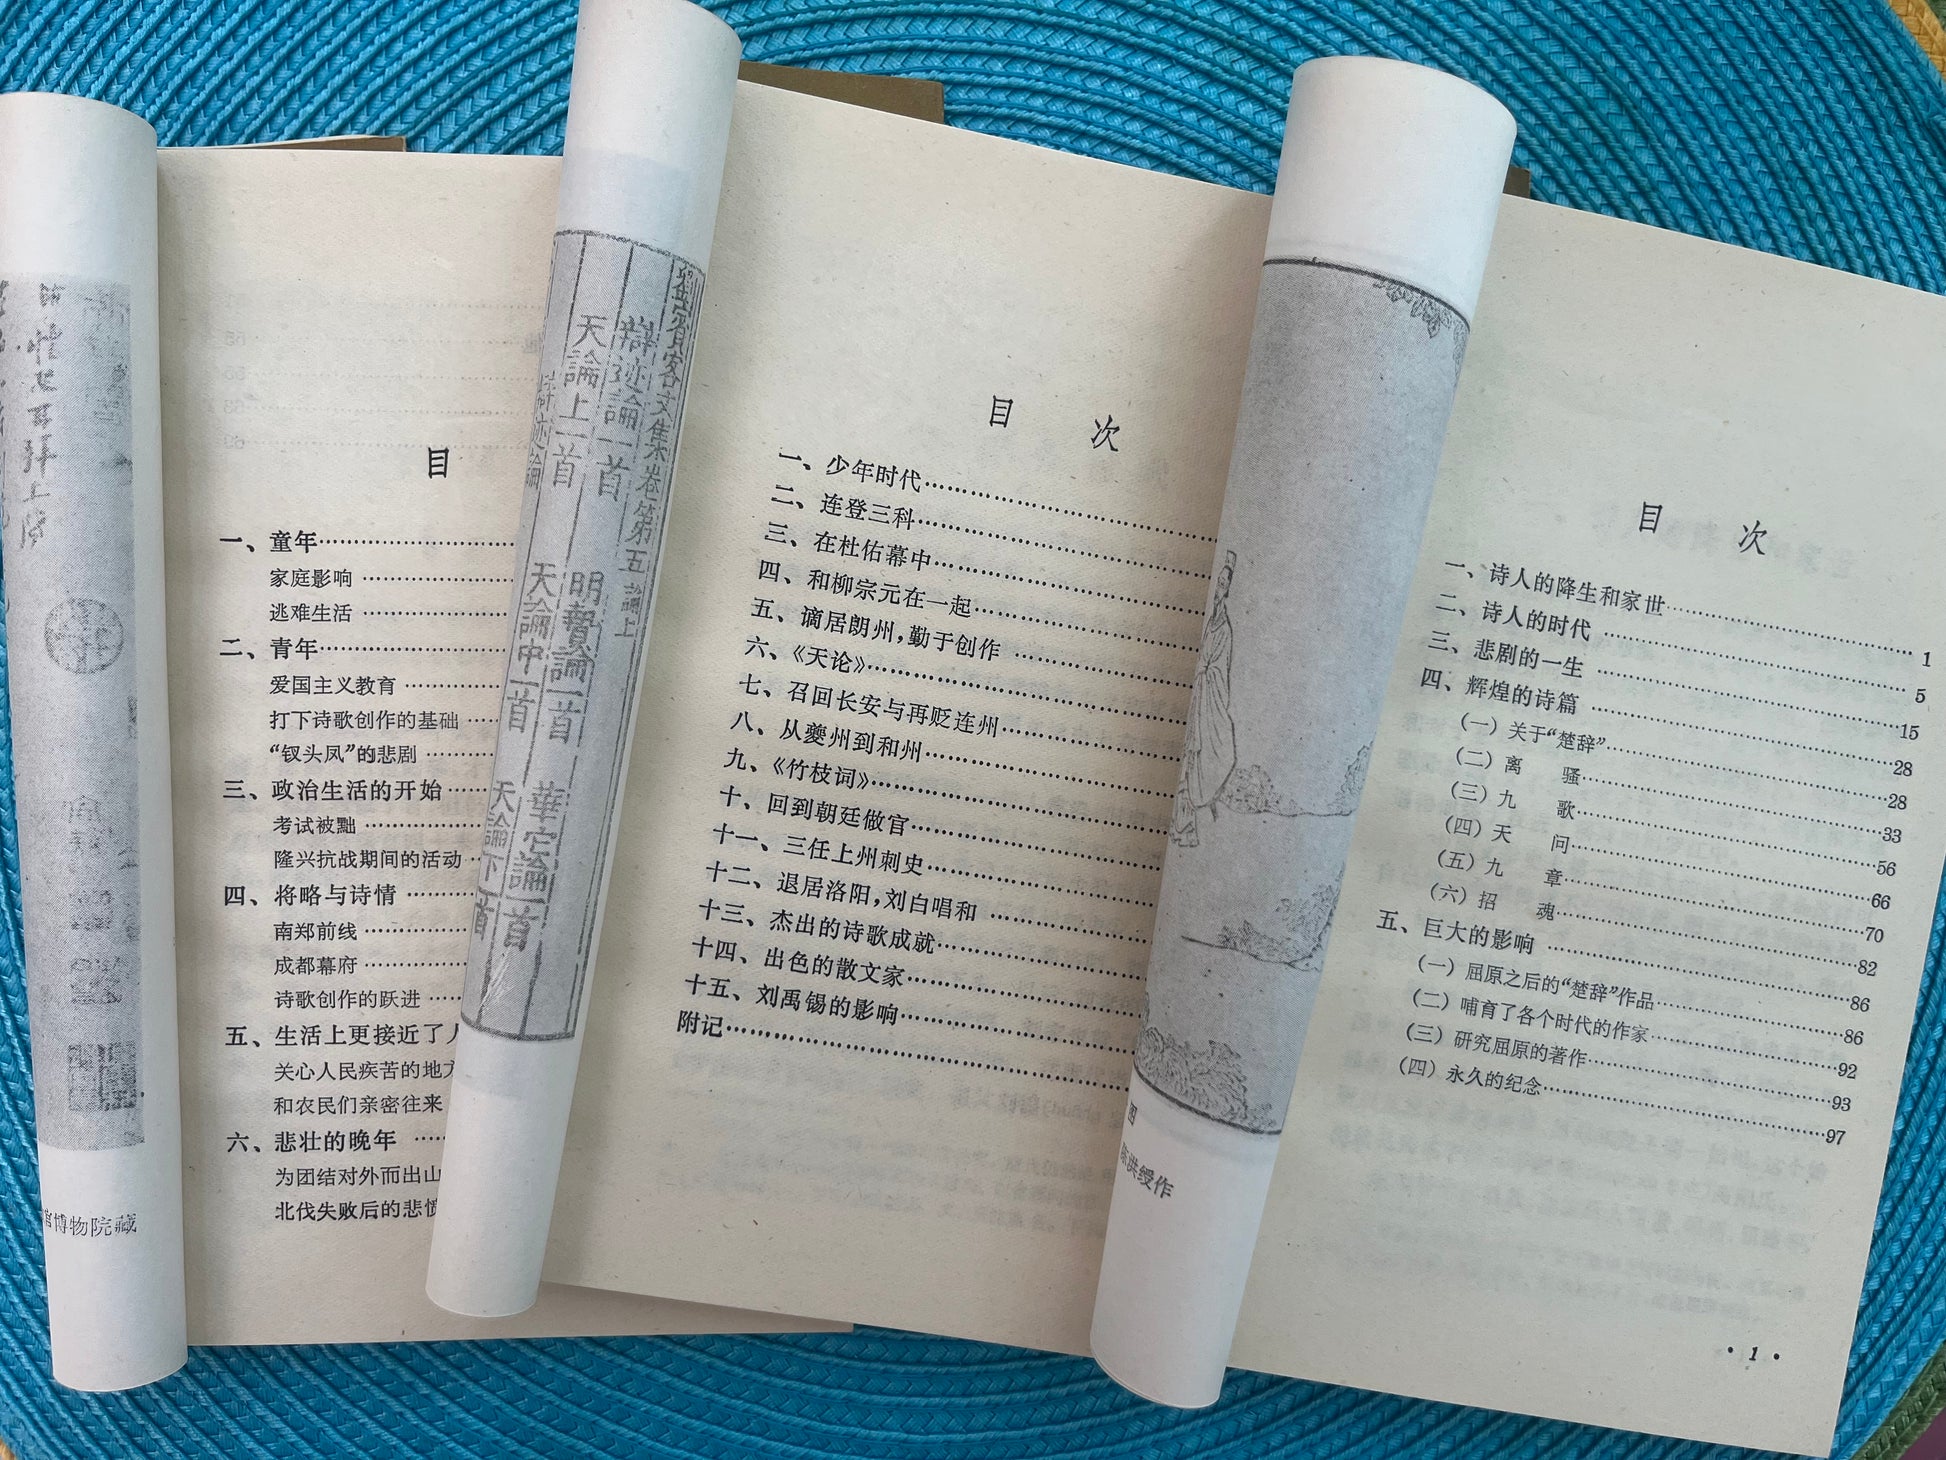 目
一、童年
家庭影响
逃难生活
二、青年
爱国主义教育
打下诗歌创作的基础
“钗头凤”的悲剧
三、政治生活的开始
考试被黜
隆兴抗战期间的活动
四、将略与诗情
南郑前线
成都幕府
诗歌创作的跃进
五、生活上更接近了
关心人民疾苦的地方
和农民们亲密往来
六、悲壮的晚年
为团结对外而出山
北伐失败后的悲
博物院藏
劉賓客文集卷第五 論上
辯迹論一首 明贄論一首 華佗論一首
天論上一首 天論中一首 天論下一首
辯迹論
目 次
一、少年时代
二、连登三科
三、在杜佑幕中
四、和柳宗元在一起
五、谪居朗州，勤于创作
六、《天论》
七、召回长安与再贬连州
八、从夔州到和州
九、《竹枝词》
十、回到朝廷做官
十一、三任上州刺史
十二、退居洛阳，刘白唱和
十三、杰出的诗歌成就
十四、出色的散文家
十五、刘禹锡的影响
附记
图
陈洪绶作
目 次
一、诗人的降生和家世 1
二、诗人的时代 5
三、悲剧的一生 15
四、辉煌的诗篇 28
（一）关于“楚辞” 28
（二）离 骚 33
（三）九 歌 56
（四）天 问 66
（五）九 章 70
（六）招 魂 82
五、巨大的影响 86
（一）屈原之后的“楚辞”作品 86
（二）哺育了各个时代的作家 92
（三）研究屈原的著作 93
（四）永久的纪念 97
• 1 •